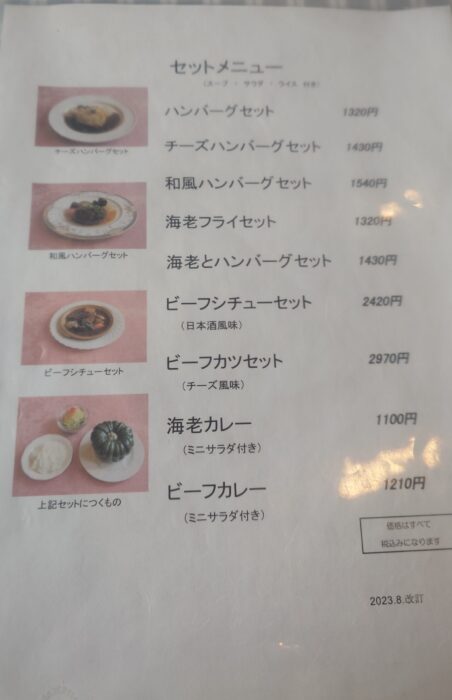 セットメニュー
(スープ ・ サラダ ・ ライス 付き)
ハンバーグセット 1320円
チーズハンバーグセット
チーズハンバーグセット 1430円
和風ハンバーグセット 1540円
海老フライセット 1320円
和風ハンバーグセット
海老とハンバーグセット 1430円
ビーフシチューセット 2420円
(日本酒風味)
ビーフシチューセット
ビーフカツセット 2970円
(チーズ風味)
海老カレー 1100円
(ミニサラダ付き)
上記セットにつくもの
ビーフカレー 1210円
(ミニサラダ付き)
価格はすべて
税込みになります
2023.8.改訂